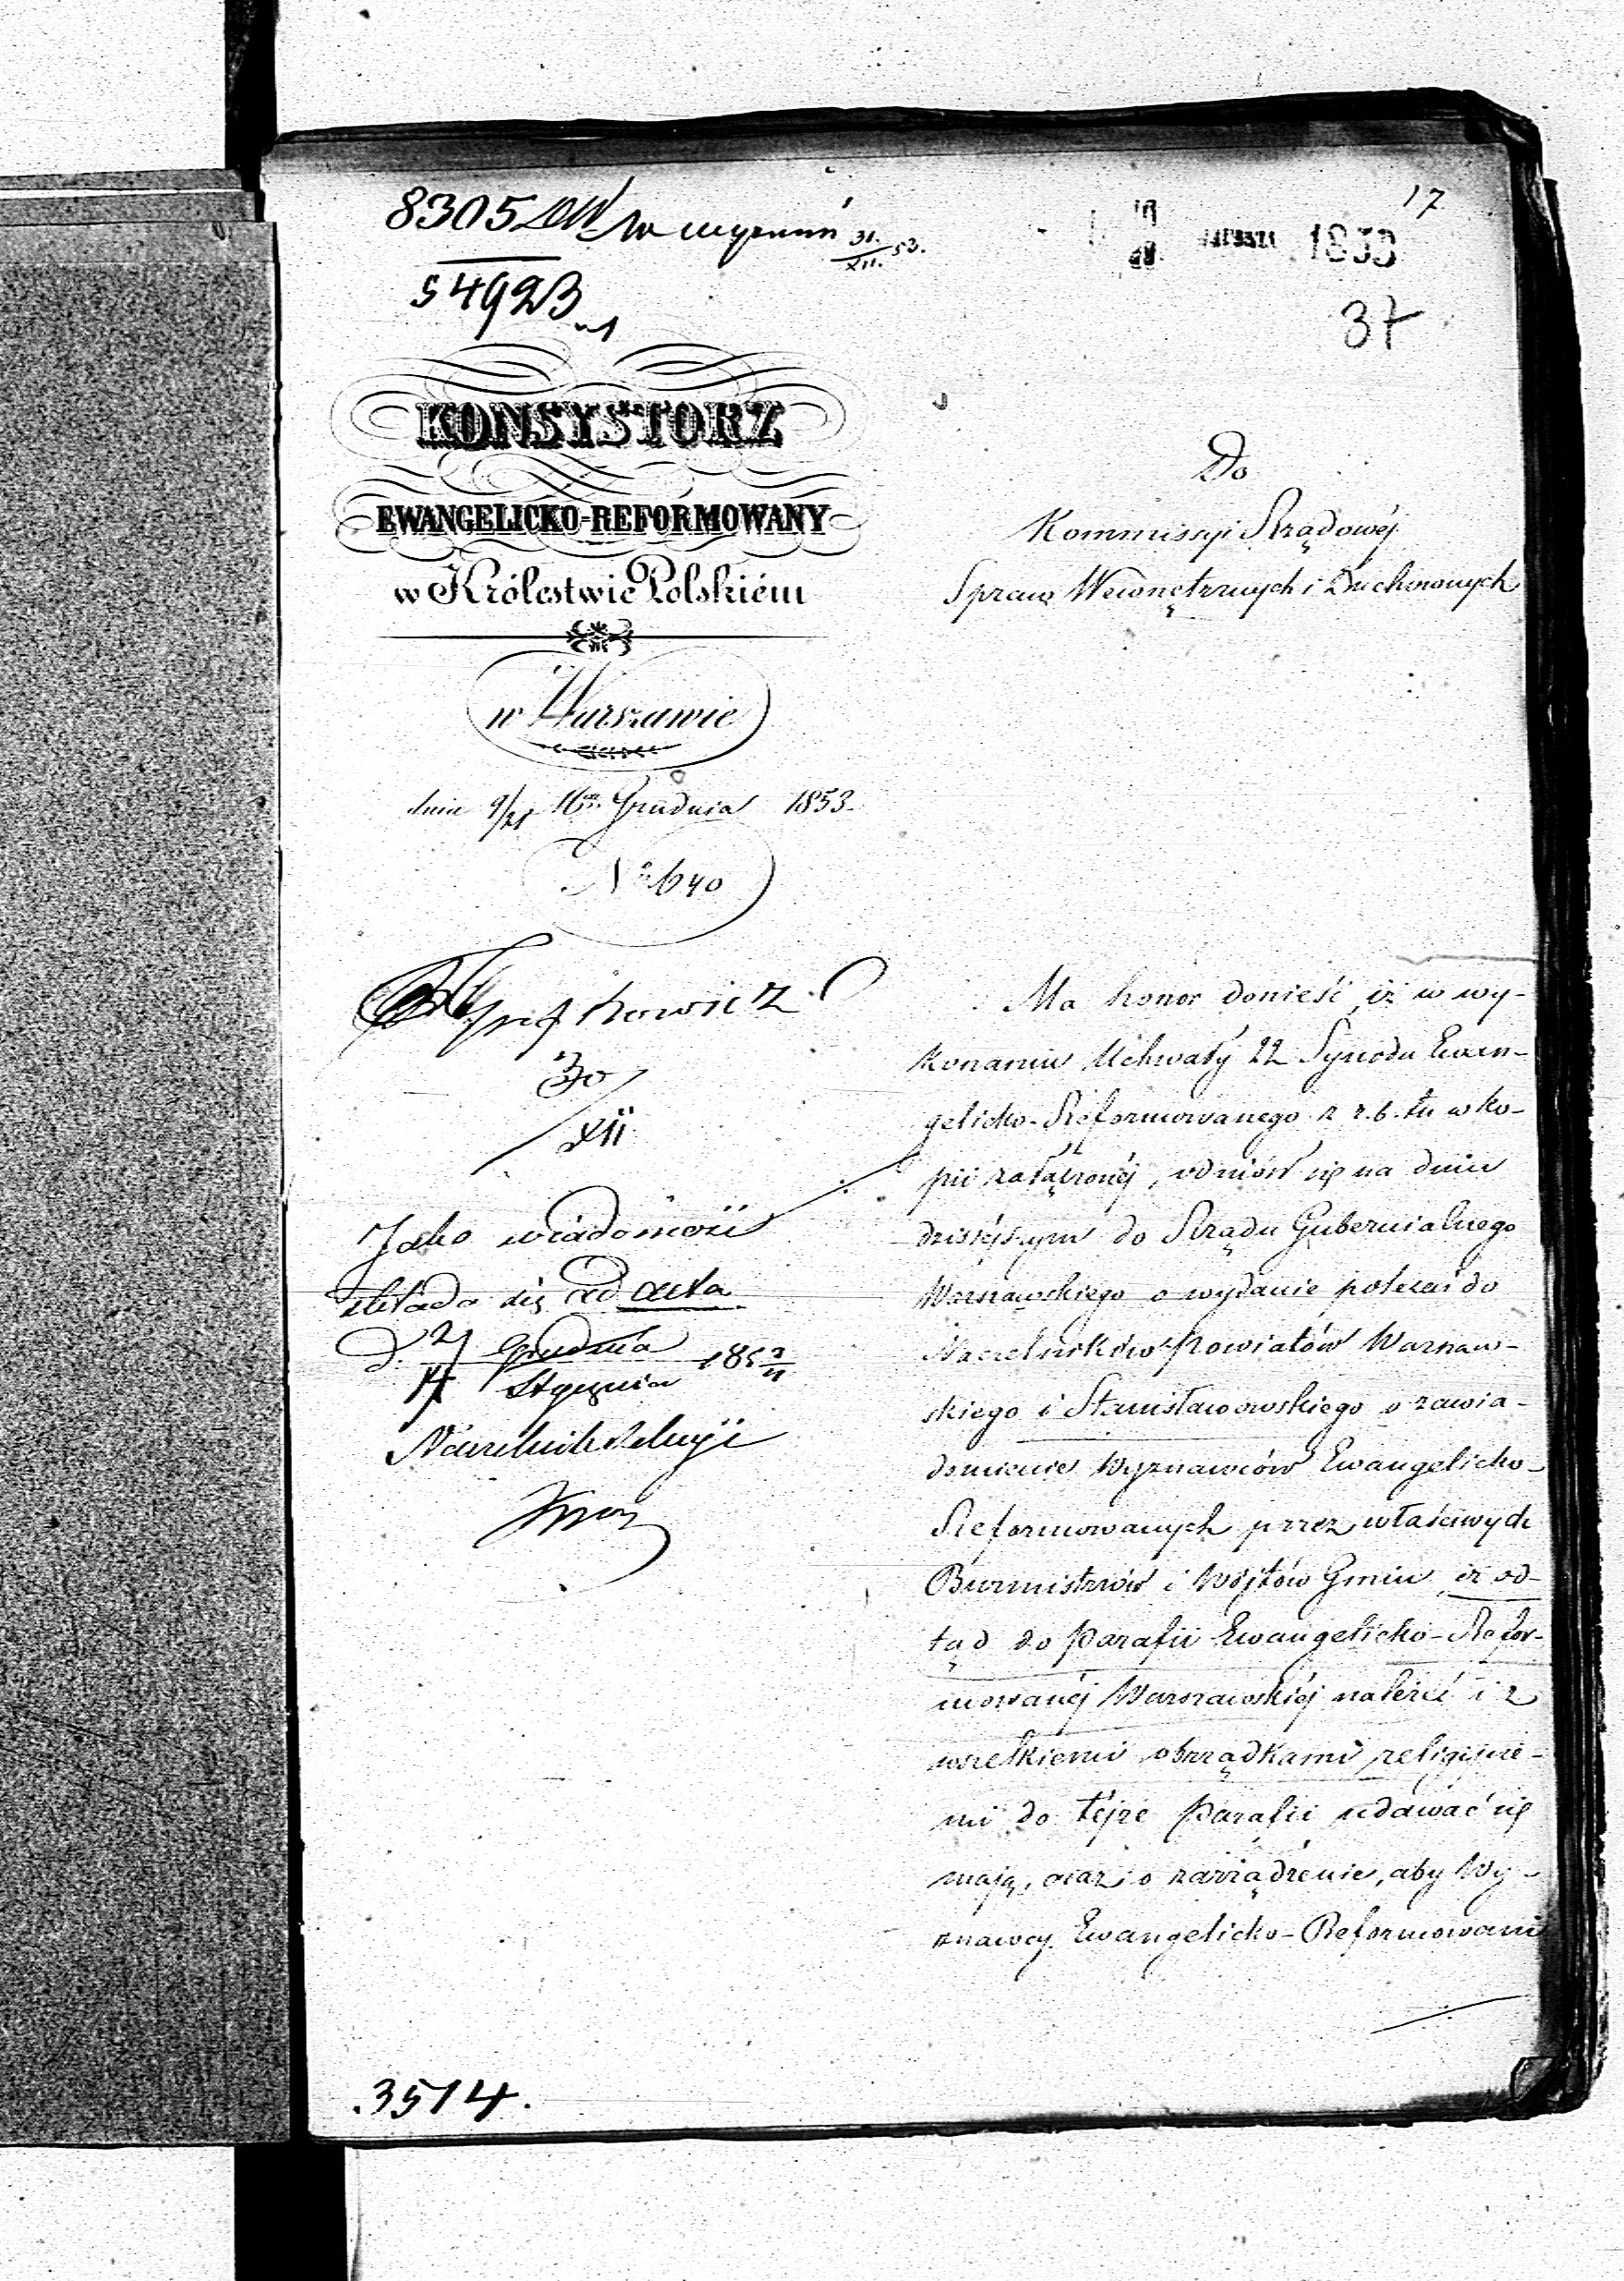 8305
54923
31. XII. 53.
17
1853
37
KONSYSTORZ
EWANGELICKO-REFORMOWANY
w Królestwie Polskiém
w Warszawie
dnia 9/21 Grudnia 1853.
№ 640
Do
Kommissyi Rządowéj
Spraw Wewnętrznych i Duchownych
30
XII
Jako wiadomość
składa się ad acta
d. Grudnia
Stycznia 185
Naczelnik Sekcyi
Ma honor donieść, iż w wy-
konaniu Uchwały 22 Synodu Ewan-
gelicko-Reformowanego z r. b. tu w ko-
pii załączonéj, odniósł się na dniu
dzisiéjszym do Rządu Gubernialnego
Warszawskiego o wydanie poleceń do
Naczelników Powiatów Warszaw-
skiego i Stanisławowskiego o zawia-
domienie Wyznawców Ewangelicko-
Reformowanych przez właściwych
Burmistrzów i Wójtów Gmin, iż od-
tąd do Parafii Ewangelicko-Refor-
mowanéj Warszawskiéj należéć i z
wszelkiemi obrządkami religijne-
mi do téjże Parafii udawać się
mają, oraz o zarządzenie, aby Wy-
znawcy Ewangelicko-Reformowani
3514.